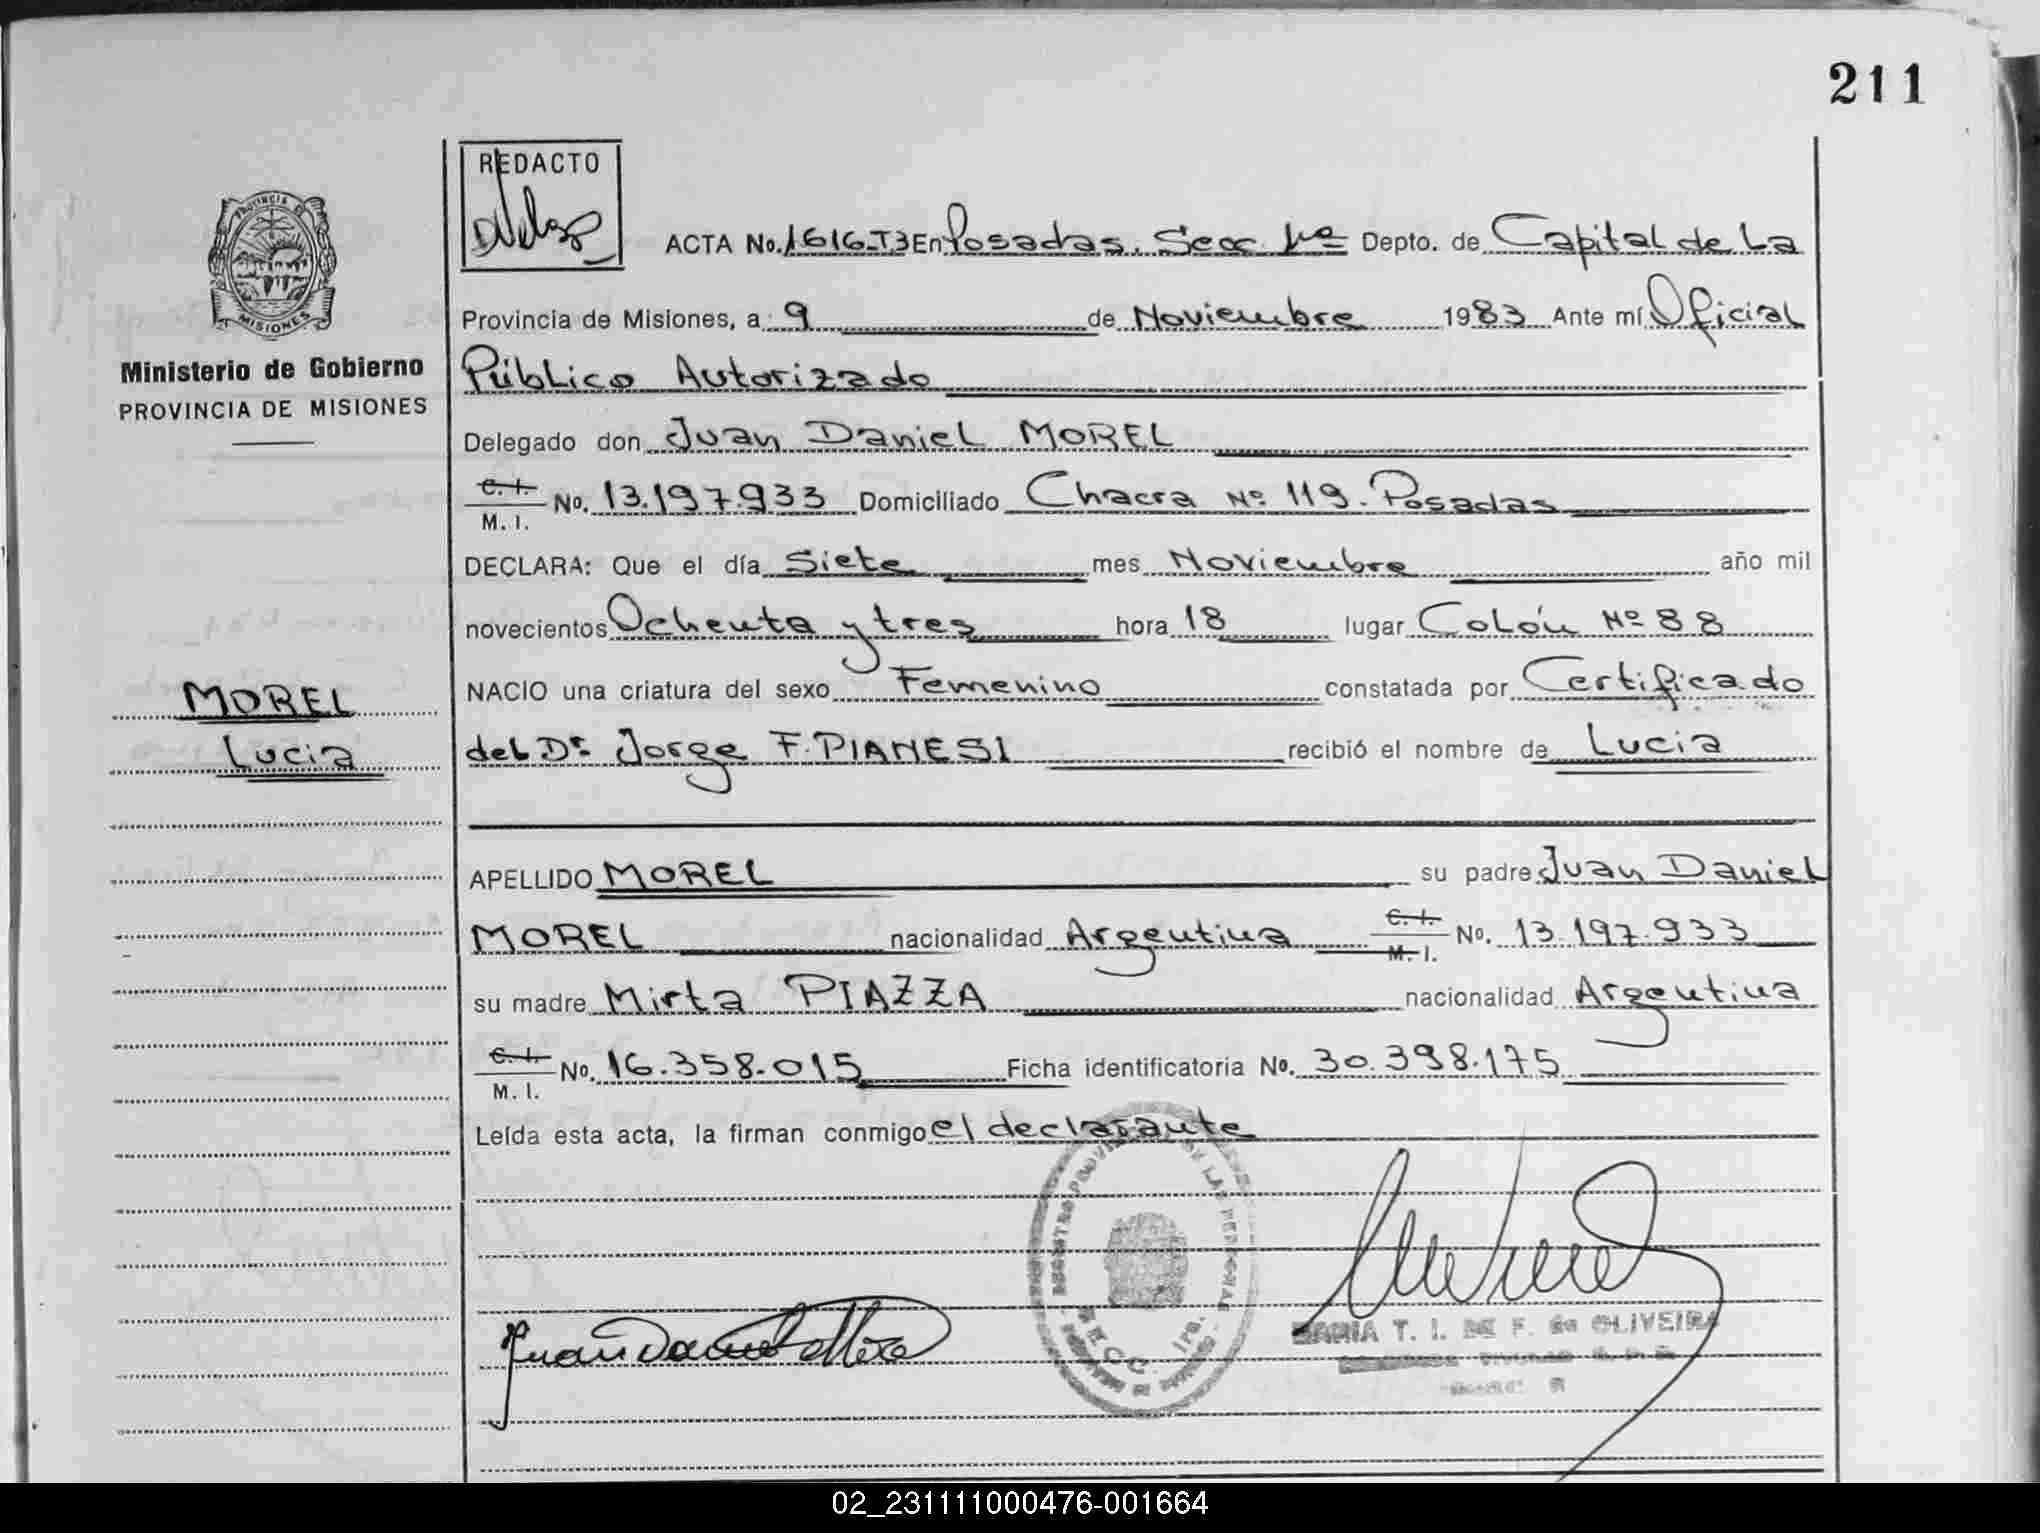 211
REDACTO
ACTA No. 1616-T3 En Posadas. Secc. 1ra Depto. de Capital de La
Provincia de Misiones, a 9 de Noviembre 1983 Ante mí Oficial
Público Autorizado
PROVINCIA DE
MISIONES
Ministerio de Gobierno
PROVINCIA DE MISIONES
Delegado don Juan Daniel MOREL
C. I.
M. I.
No. 13.197.933 Domiciliado Chacra Nº 119. Posadas
DECLARA: Que el día Siete mes Noviembre año mil
novecientos Ochenta y tres hora 18 lugar Colón Nº 88
NACIO una criatura del sexo Femenino constatada por Certificado
del Dr. Jorge F. PIANESI recibió el nombre de Lucia
MOREL
Lucia
APELLIDO MOREL su padre Juan Daniel
MOREL nacionalidad Argentina C. I. M. I. No. 13.197.933
su madre Mirta PIAZZA nacionalidad Argentina
C. I.
M. I.
No. 16.358.015 Ficha identificatoria No. 30.398.175
Leída esta acta, la firman conmigo el declarante
DE LAS PERSONAS
SECC. 1ra.
Juan Daniel Morel
MARIA T. I. DE F. de OLIVEIRA
02_231111000476-001664